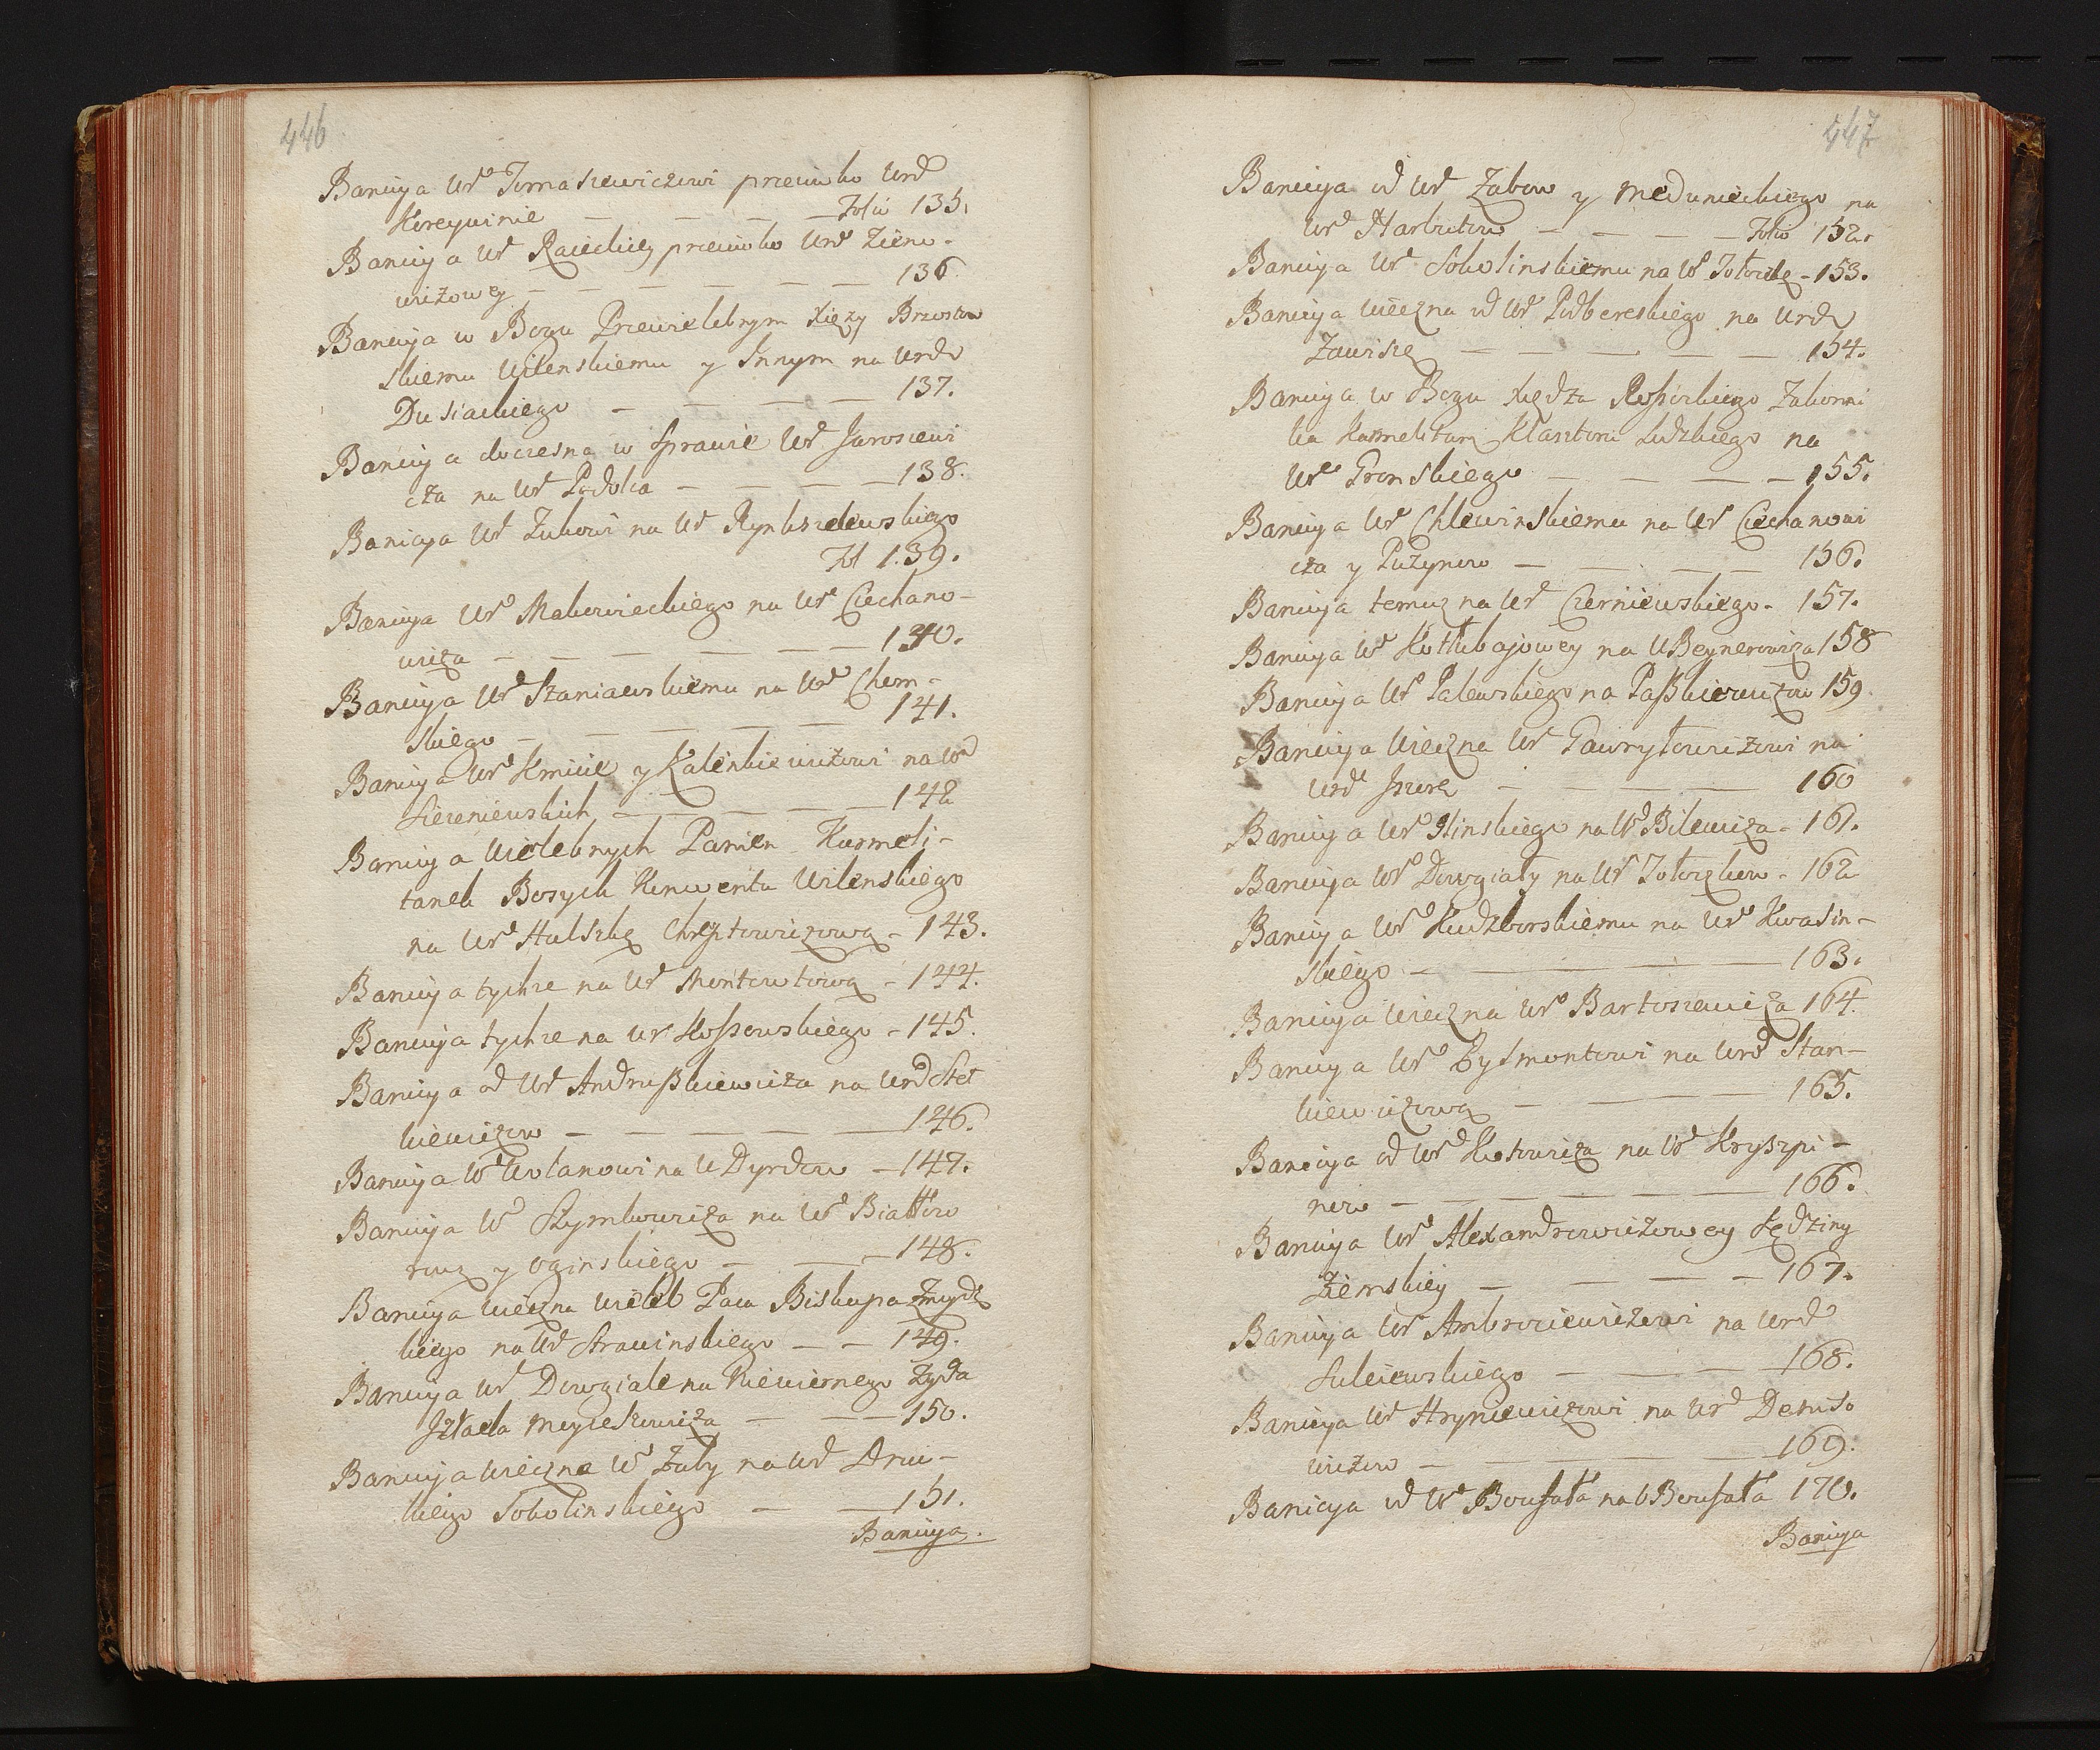 446
Banicya Ur Tomaszewiczowi przeciwko Urd
Koreywinie — — — — Folio 135.
Banicya Ur Raieckiey przeciwko Urd Zieno-
wizowey — — — — — — 136.
Banicya w Bogu Przewielebnym Xięży Brzostow
skiemu Wilenskiemu y Innym na Urd
Dusiackiego — — — — 137.
Banicya doczesna w Sprawie Ur Jarosiewi
cza na Ur Podolca — — — — 138.
Banicya Ur Zubowi na Ur Rynkszelewskiego
Fol 139.
Banicya Ur Makowieckiego na Ur Ciechano-
wiza — — — — — — 140.
Banicya Ur Szaniawskiemu na Ur Chem-
skiego — — — — — 141.
Banicya Ur Kmicie y Kalenkiewizowi na Ur
Siezeniewskich — — — — 142
Banicya Wielebnych Panien Karmeli-
tanek Bosych Konwentu Wilenskiego
na Ur Halszkę Chreptowizową - 143.
Banicya tychze na Ur Montowtową - 144.
Banicya tychze na Ur Kossowskiego - 145.
Banicya od Ur Andruszkiewicza na Urd Stet
kiewizow — — — — — 146.
Banicya Ur Wolanowi na U Dyrdow — 147.
Banicya Ur Szymkowiza na Ur Biallo
ruz y Oginskiego — — — 148.
Banicya wieczna Wieleb Paca Biskupa Zmydz
kiego na Ur Strawinskiego — — 149.
Banicya Ur Dowgiale na Niewiernego Zyda
Izraela Meyieszowiza — — — 150.
Banicya wieczna Ur Zaby na Ur Druc-
kiego Sokolinskiego — — 151.
Banicya.
447
Banicya od Ur Zabow y Medunieckiego na
Ur Harbutow — — — — Folio 152.
Banicya Ur Sokolinskiemu na Ur Toloczkę - 153.
Banicya wieczna od Ur Podbereskiego na Urd
Zawiszę — — — — — 154.
Banicya w Bogu Xiędza Rossockiego Zakonni
ka Karmelitan Klasztoru Ludzkiego na
Ur Gronskiego — — — — 155.
Banicya Ur Chlewinskiemu na Ur Ciechanowi
cza y Puzynow — — — — 156.
Banicya temuz na Ur Czerniewskiego - 157.
Banicya Ur Kotłubajowey na U Beynerowiza 158
Banicya Ur Palewskiego na Paszkiewizow 159
Banicya Wieczna Ur Gawryłowizowi na
Urd Jszorę — — — — — 160
Banicya Ur Ilinskiego na Ur Bilewiza - 161.
Banicya Ur Dowgiały na Ur Tołoczkow - 162
Banicya Ur Kudzborskiemu na Ur Kwasin-
skiego — — — — — 163.
Banicya wieczna Ur Bartoszewiza 164.
Banicya Ur Bysmontowi na Urd Stan-
kiewizową — — — — 165.
Banicya od Ur Kotowiza na Ur Kryszpi-
now — — — — — — 166.
Banicya Ur Alexandrowizowey Sędziny
Ziemskiey — — — — 167.
Banicya Ur Ambrozewizowi na Urd
Suleiewskiego — — — — 168.
Banicya Ur Hryniewizowi na Ur Deniso
wizow — — — — — 169.
Banicya od Ur Boufała na U Boufała 170.
Banicya